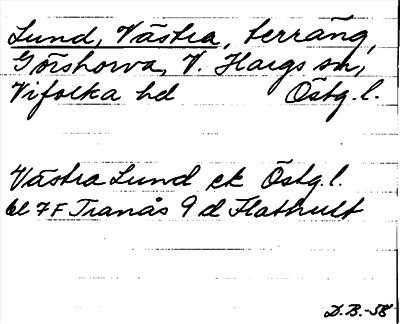 Lund, Västra, terräng,
Görshorva, V. Hargs sn,
Vifolka hd Östg.l.
Västra Lund ek Östg.l.
bl 7F Tranås 9 d Flathult
D.B.-58